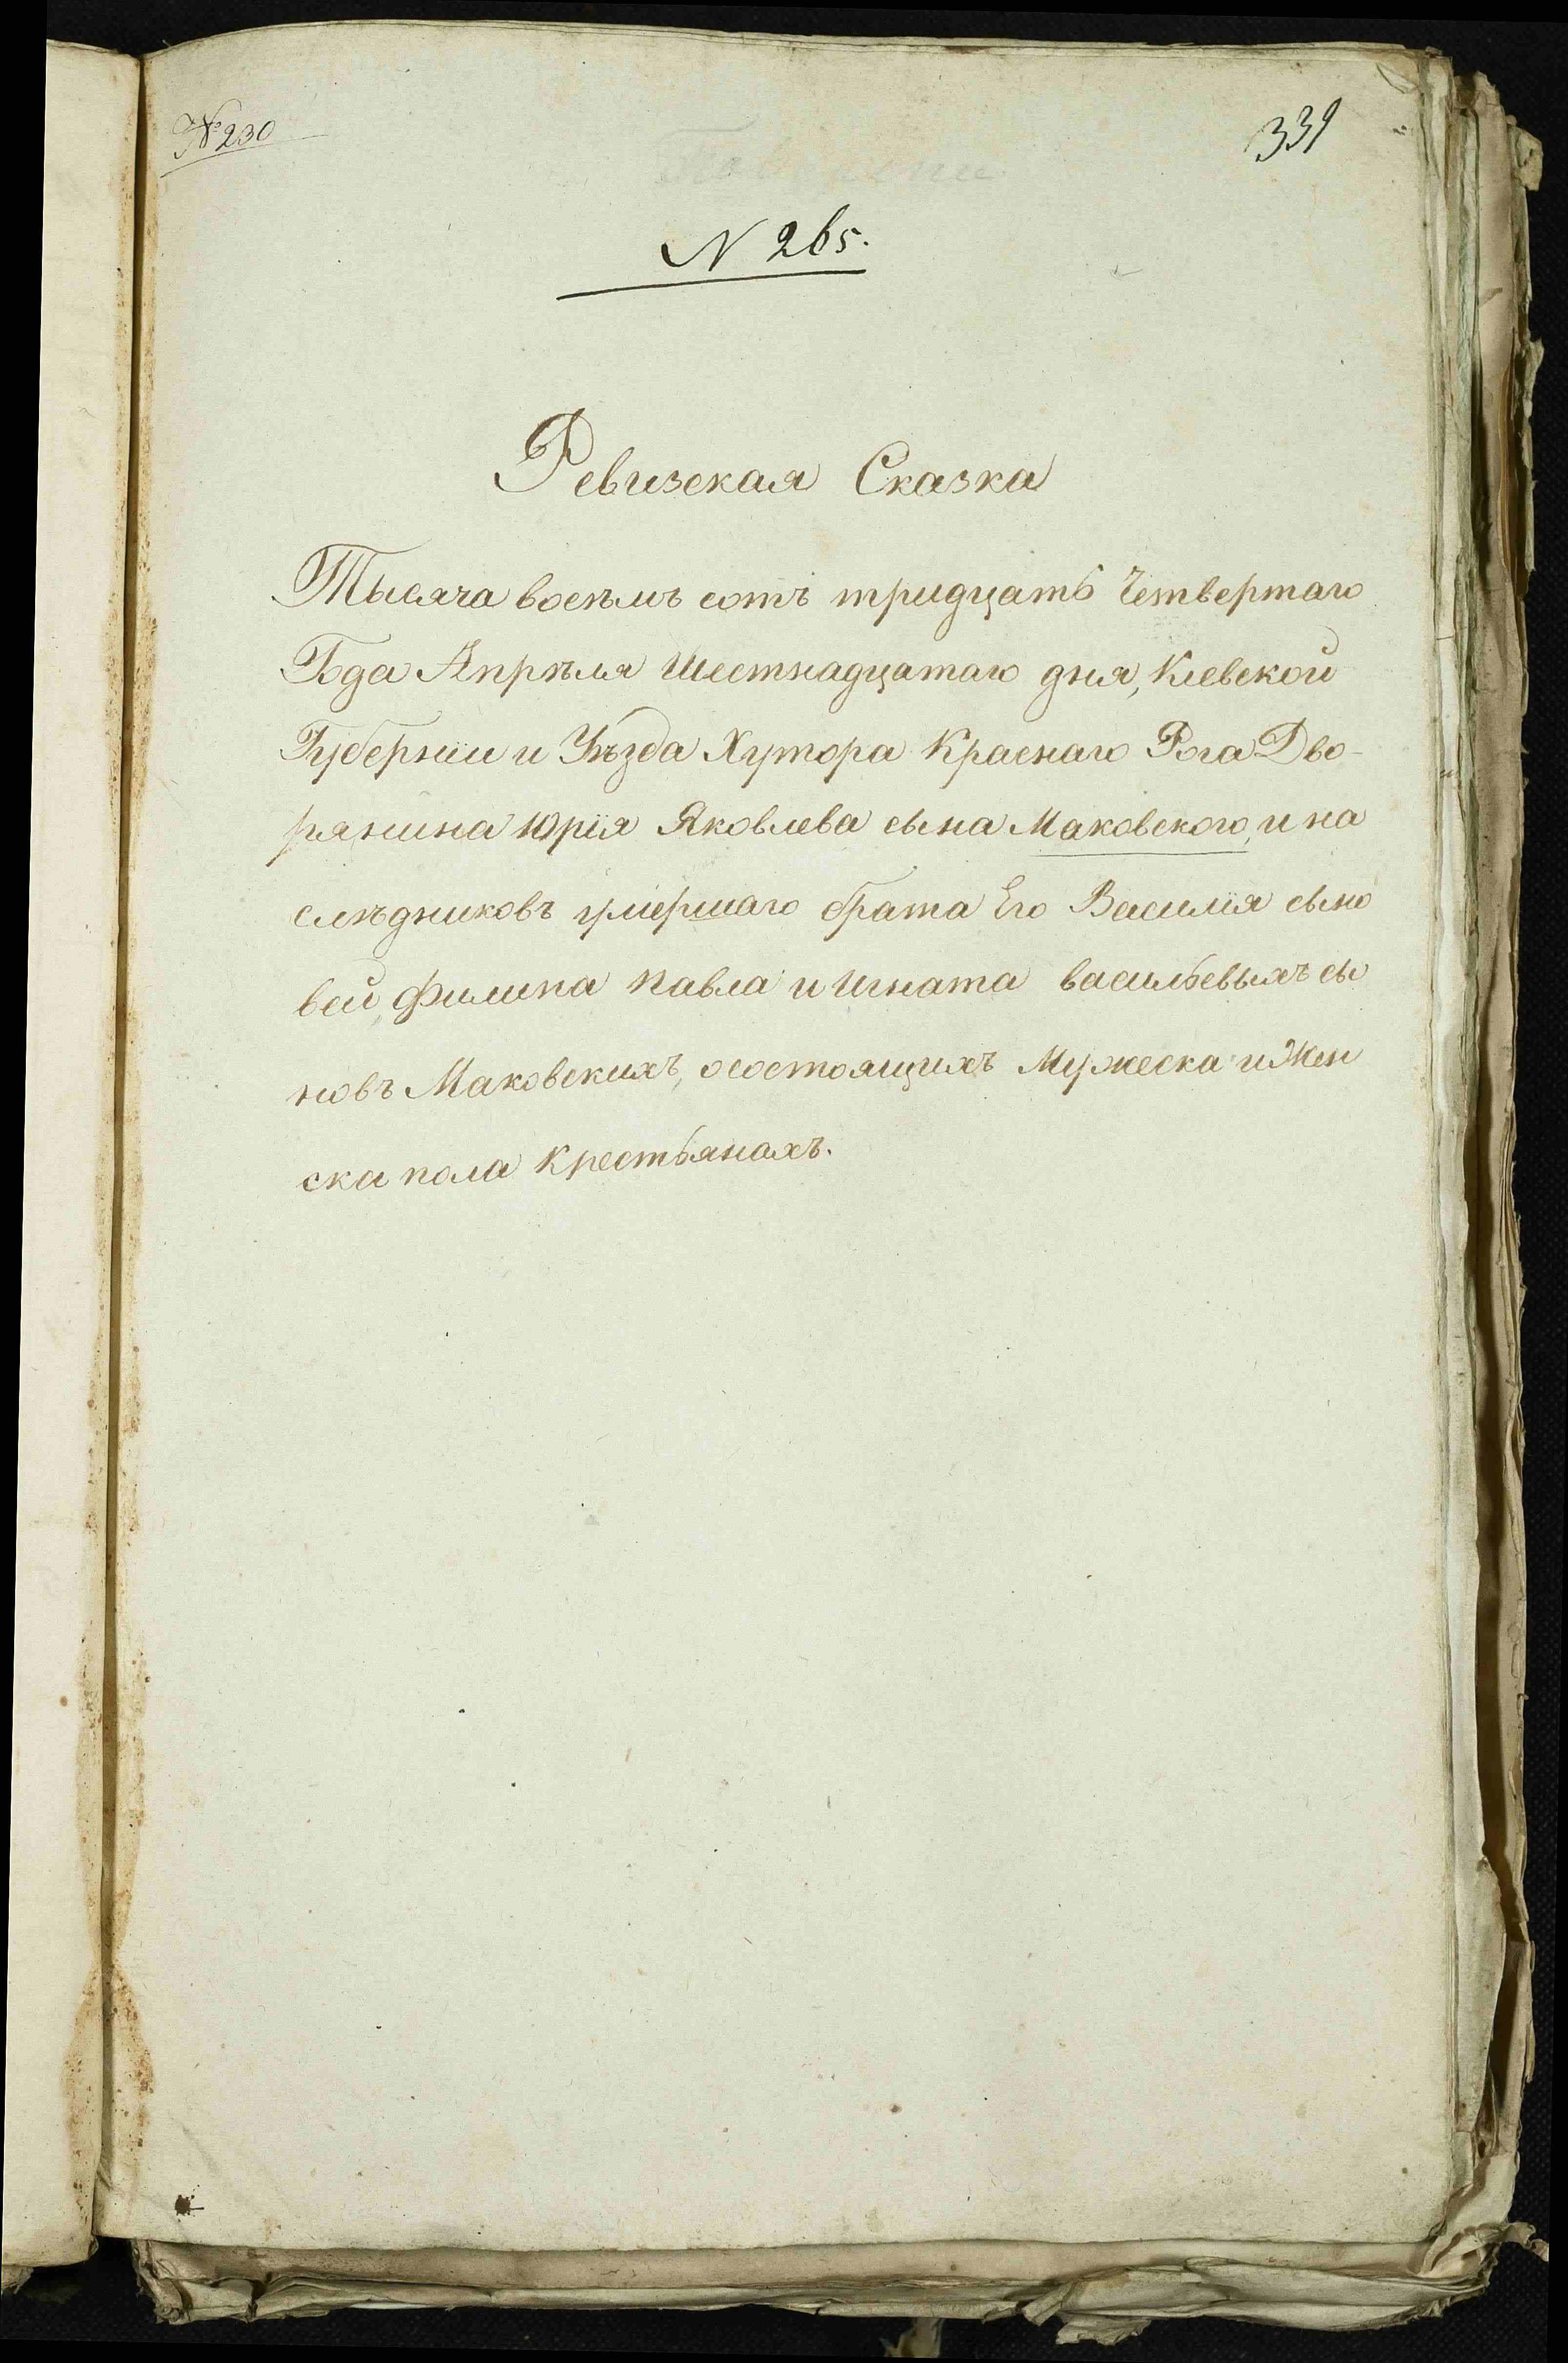 № 230
339
N 265.
Ревизская Сказка
Тысяча восемъ сотъ тридцать Четвертаго
Года Апрѣля Шестнадцатаго дня, Кіевской
Губерніи и Уѣзда Хутора Краснаго Рога Дво-
рянина Юрія Яковлева сына Маковского, и на
слѣдниковъ умершаго брата Его Василія сыно
вей, Филипа Павла и Игната васильевыхъ сы
новъ Маковскихъ, осостоящихъ Мужеска и Жен
ска пола Крестьянахъ.